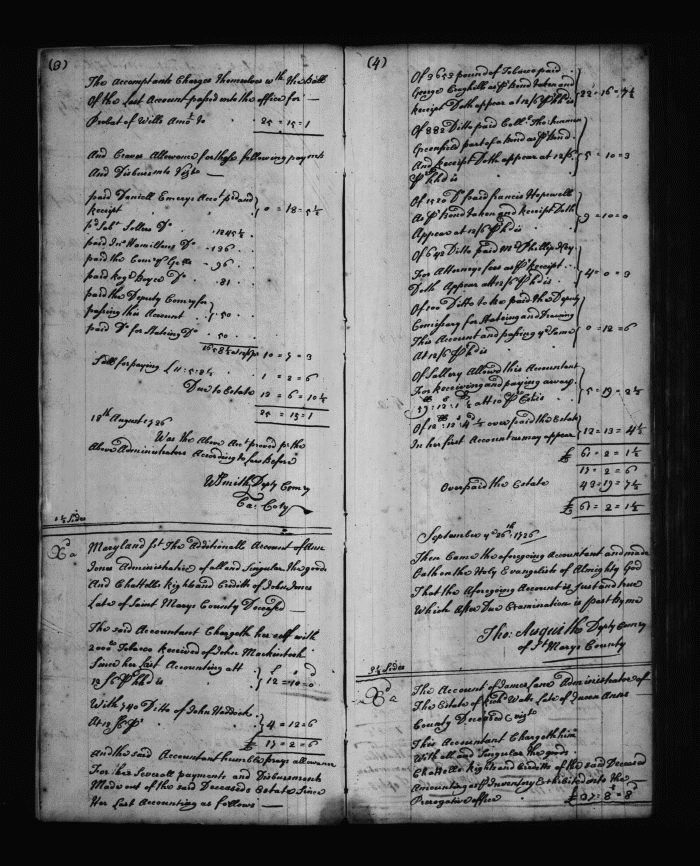 (3)
The Accomptants Charges themselves wth the Ball
Of the Last Account passed into the office for
Probat of Wills Amo.t to 25 = 15 = 1
And Craves Allowance for these following payments
And Disbursments Vizt
paid Daniell Emerys Acco.t pd and
receipt 0 = 18 = 5½
pd Sollers Do 1245½
paid Jno Hamiltons Do 136
paid the 96
paid Boyce Do 81
paid the Deputy Comry for
passing this Account 50
paid Do for Stateing Do 50
10 = 7 = 3
Sall for paying L 11: 5: 8½ 1 = 2 = 6
Due to Estate 12 = 6 = 10½
25 = 15 = 1
18th August 1726
Was the Above Acct proved pr the
Above Administrators According to Law Before
WSmith Depty Comry
Ca: Coty
1½ Sides
Maryland sst The Additionall Account of Ann
Jones Administratrix of all and Singular the goods
And Chattells rights and Creditts of John Jones
Late of Saint Marys County Deceased
The said Accountant Chargeth her self with
2000 Tobacco received of John Mackintosh
Since her Last Accounting att
12/6 P hhd is 12 = 10 = 0
With 740 Ditto of John Haddock
At 12/6 P 4 = 12 = 6
£ 17 = 2 = 6
And the said Accountant humble prays allowance
For her Severall payments and Disbursments
Made out of the said Deceaseds Estate Since
Her Last Accounting as follows
(4)
Of 3653 pound of Tobacco paid
George as P Bond taken and
receipt Doth appear at 12/6 P hhd is 22 = 16 = 7½
Of 882 Ditto paid Coll. Tho: Truman
Greenfield part of a Bond as P Bond
And Receipt Doth appear at 12/6
P hhd is 5 = 10 = 3
Of 1520 Do paid francis Hopewell
As P Bond taken and receipt Doth
Appear at 12/6 P hhd is 9 = 10 = 0
Of 642 Ditto paid Mr Phillip Key
For Attorneys fees as P receipt
Doth Appear at 12/6 P hhd is 4 = 0 = 3
Of 100 Ditto to be paid the Deputy
Comissary for Stateing and Drawing
This Account and passing ye Same
At 12/6 P hhd is 0 = 12 = 6
Of Sallery Allowd this Accountant
For Receiving and paying away
59: 12: 1½ att 10 P Ct is 5 = 19 = 2½
Of 12: 12: 4½ over paid the Estate
In her first Account as may appear 12 = 13 = 4½
£ 61 = 2 = 1½
17 = 2 = 6
Overpaid the Estate 43 = 19 = 7½
£ 61 = 2 = 1½
September ye 26th 1726
Then Came the aforegoing Accountant and made
Oath on the Holy Evangelish of Almighty God
That the Aforegoing Account is Just and true
Which After Due Examination is past by me
Tho: Auguitho Depty Comry
of St Marys County
2½ Sides
The Account of James Lane Administrator of
The Estate of Late of Queen Anns
County Deceased vizt
This Accountant Chargeth him
With all and Singular the goods
Chattells rights and Credits of the said Deceased
Amounting as P Inventory Exhibited into the
Prerogative office £ 37 = 8 = 8